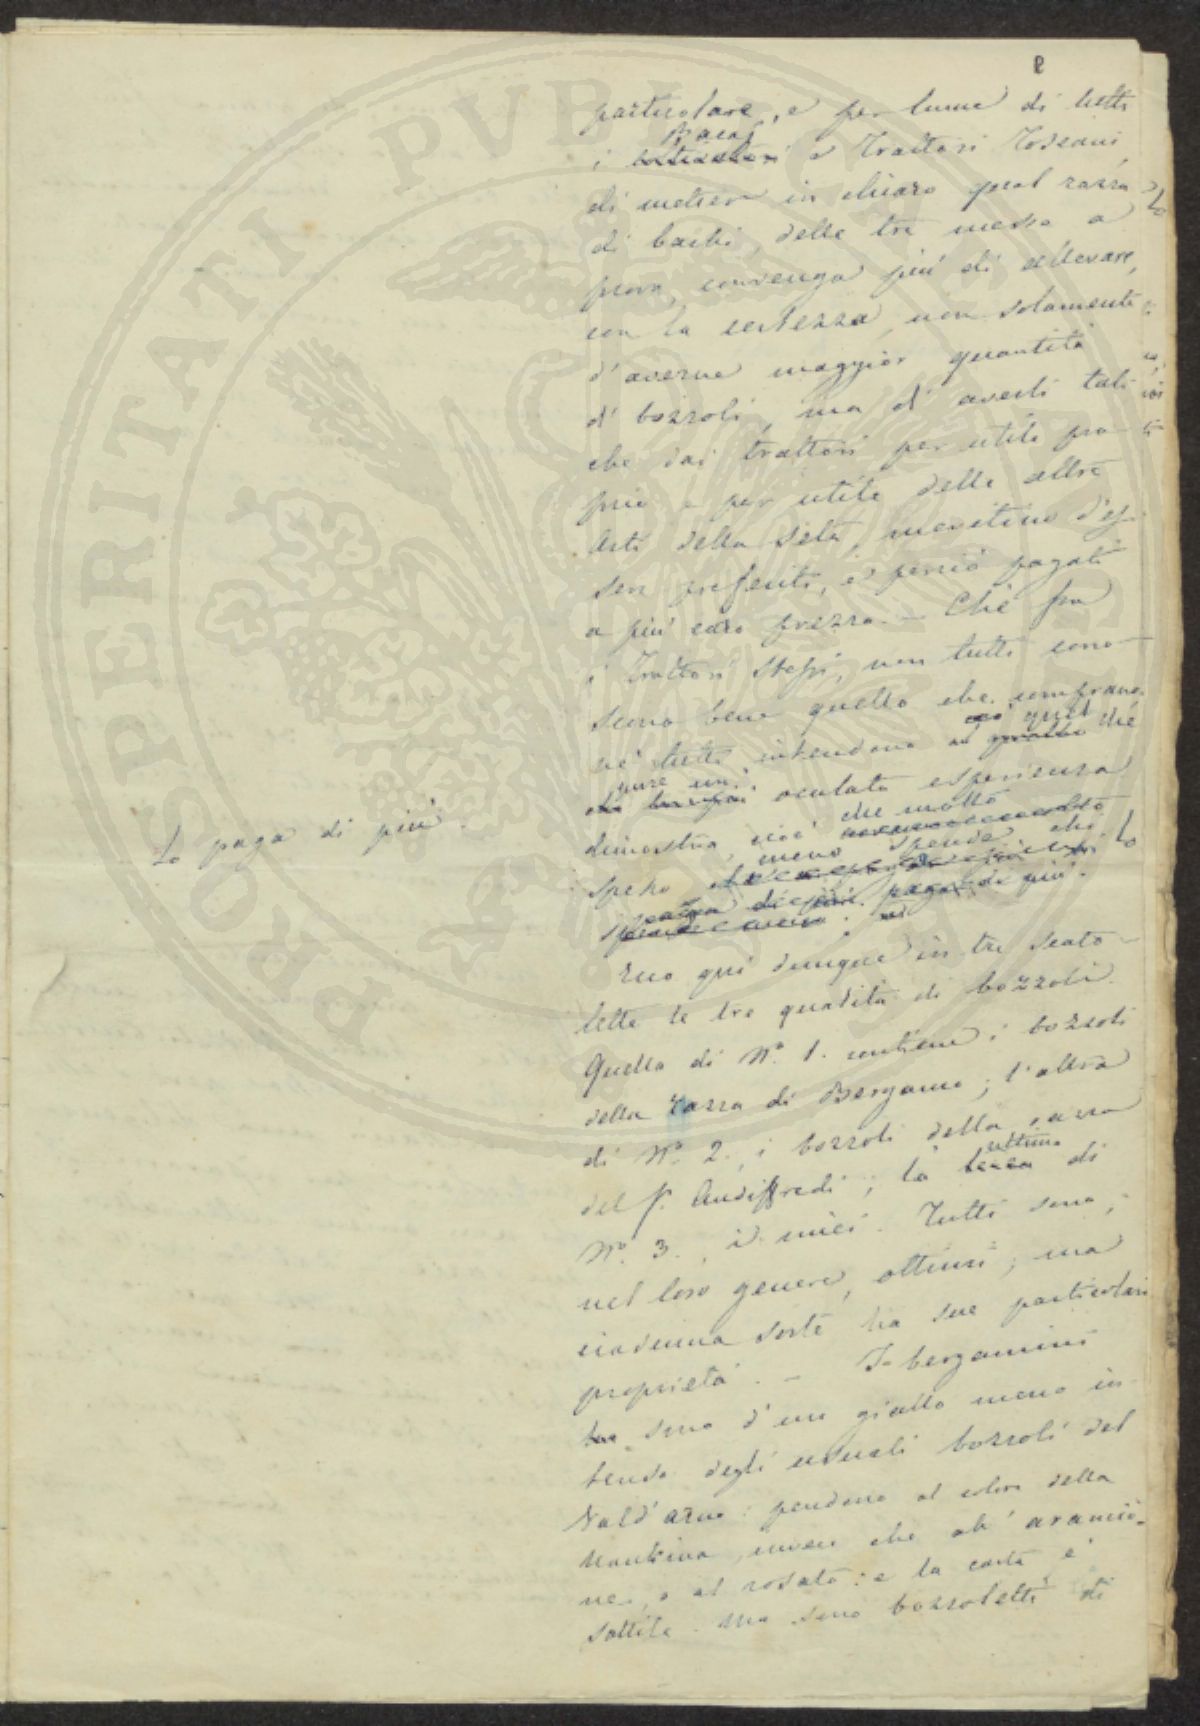 2
particolare, e per lume di tutti
Bacaj
i e Trattori Toscani,
di mettere in chiaro qual razza
di bachi, delle tre messe a
prova, convenga più di allevare,
con la certezza, non solamente
d'averne maggior quantità
di bozzoli, ma d'averli tali
che dai trattori per utile pro-
prio e per utile delle altre
Arti della Seta, meritino d'es-
ser preferiti, e perciò pagati
a più caro prezzo. - Chè fra
i Trattori stessi, non tutti cono-
scono bene quello che comprano,
nè tutti intendono quel che
pure un' oculata esperienza
dimostra, cioè che molto
spesso meno spende chi lo
paga di più.
Lo paga di più.
Ecco qui dunque in tre scato-
lette le tre qualità di bozzoli.
Quella di Nº. 1. contiene i bozzoli
della razza di Bergamo; l'altra
di Nº. 2., i bozzoli della razza
del S. Audiffredi; la terza ultima di
Nº. 3., i miei. Tutti sono,
nel loro genere, ottimi; ma
ciascuna sorte ha sue particolari
proprietà. - I bergamini
sono d'un giallo meno in-
tenso degli usuali bozzoli del
Vald'arno: pendono al color della
Nankina, invece che all'arancio-
ne, o al rosato: e la carta è
sottile. Ma sono bozzoletti di
PROSPERITATI PVBLICAE